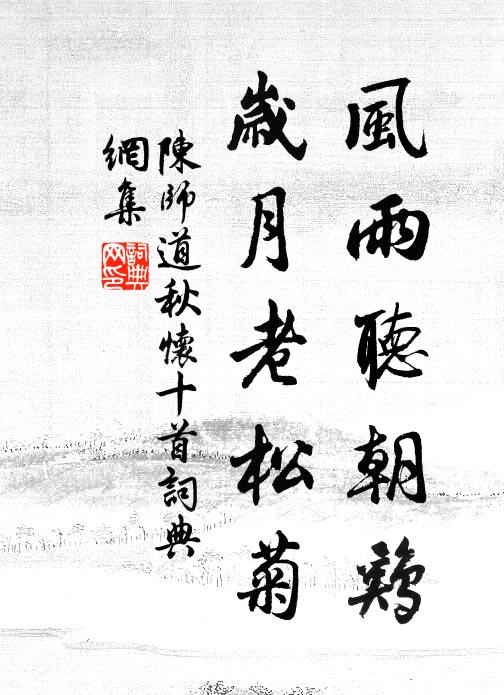 風雨聽朝鷄
歲月老松菊
陳師道秋懷十首詞典
網集
詞典
网印